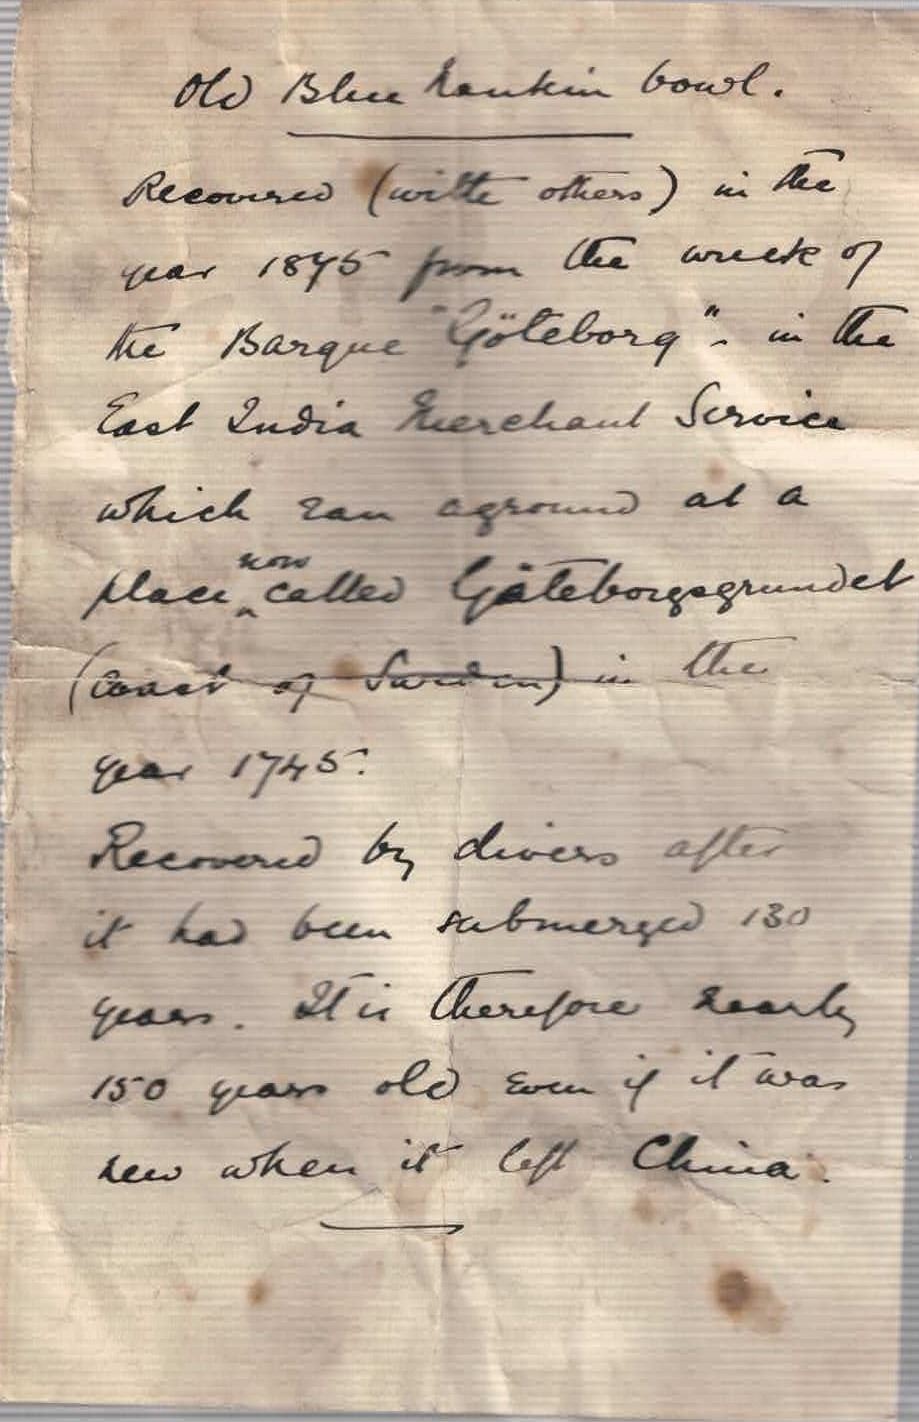 Old Blue Nankin bowl.
Recovered (with others) in the
year 1875 from the wreck of
the Barque "Göteborg" - in the
East India Merchant Service
which ran aground at a
place now called Göteborgsgrundet
(coast of Sweden) in the
year 1745.
Recovered by divers after
it had been submerged 130
years. It is therefore nearly
150 years old even if it was
new when it left China.